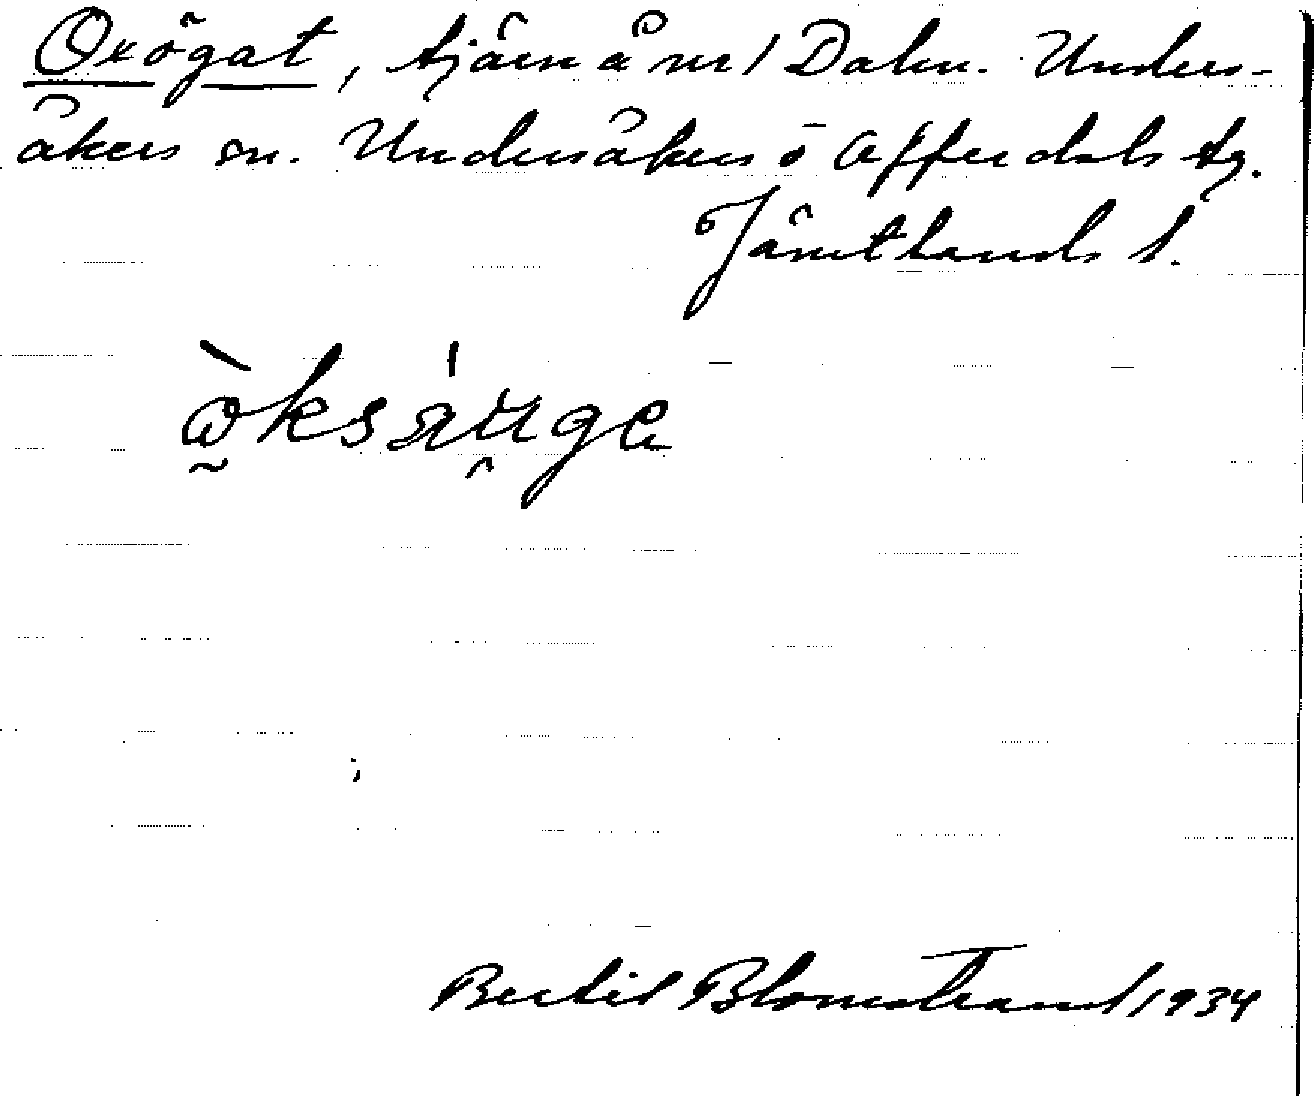 Oxögat, tjärn å nr 1 Dalen. Unders-
åkers sn. Undersåkers o Offerdals tg.
Jämtlands l.
Bertil Blomstrand 1934